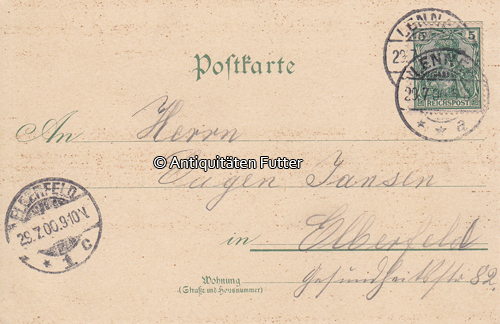 Postkarte
LENNEP
29.7.
a
5 5
REICHSPOST
An Herrn
© Antiquitäten Futter
Eugen Jansen
in Elberfeld
Wohnung
(Straße und Hausnummer)
Gesundheitsstr 82
ELBERFELD
29.7.00.9-10V.
* 1 c